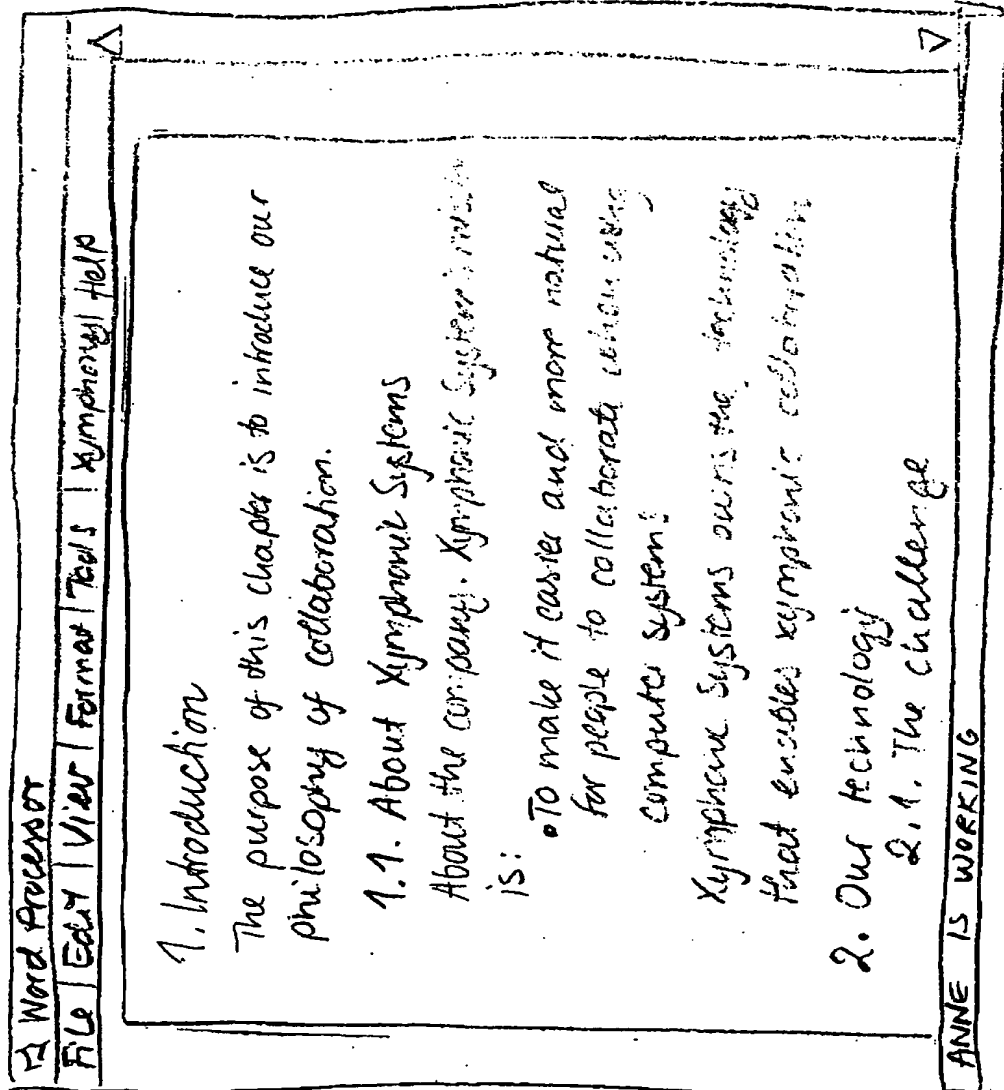 Word Processor
File | Edit | View | Format | Tools | Xymphony | Help
1. Introduction
The purpose of this chapter is to introduce our
philosophy of collaboration.
1.1. About Xymphonic Systems
About the company. Xymphonic System's mission
is:
•To make it easier and more natural
for people to collaborate when using
computer systems
Xymphonic Systems owns the technology
that enables xymphonic collaboration
2. Our technology
2.1. The challenge
ANNE IS WORKING